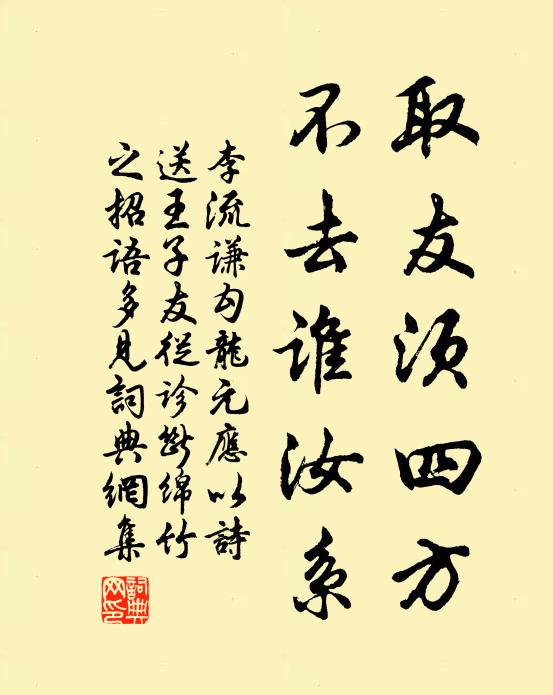 取友须四方
不去谁汝系
李流謙勾龍元應以詩
送王子友從诊斷綿竹
之招語多見詞典網集
詞典網印